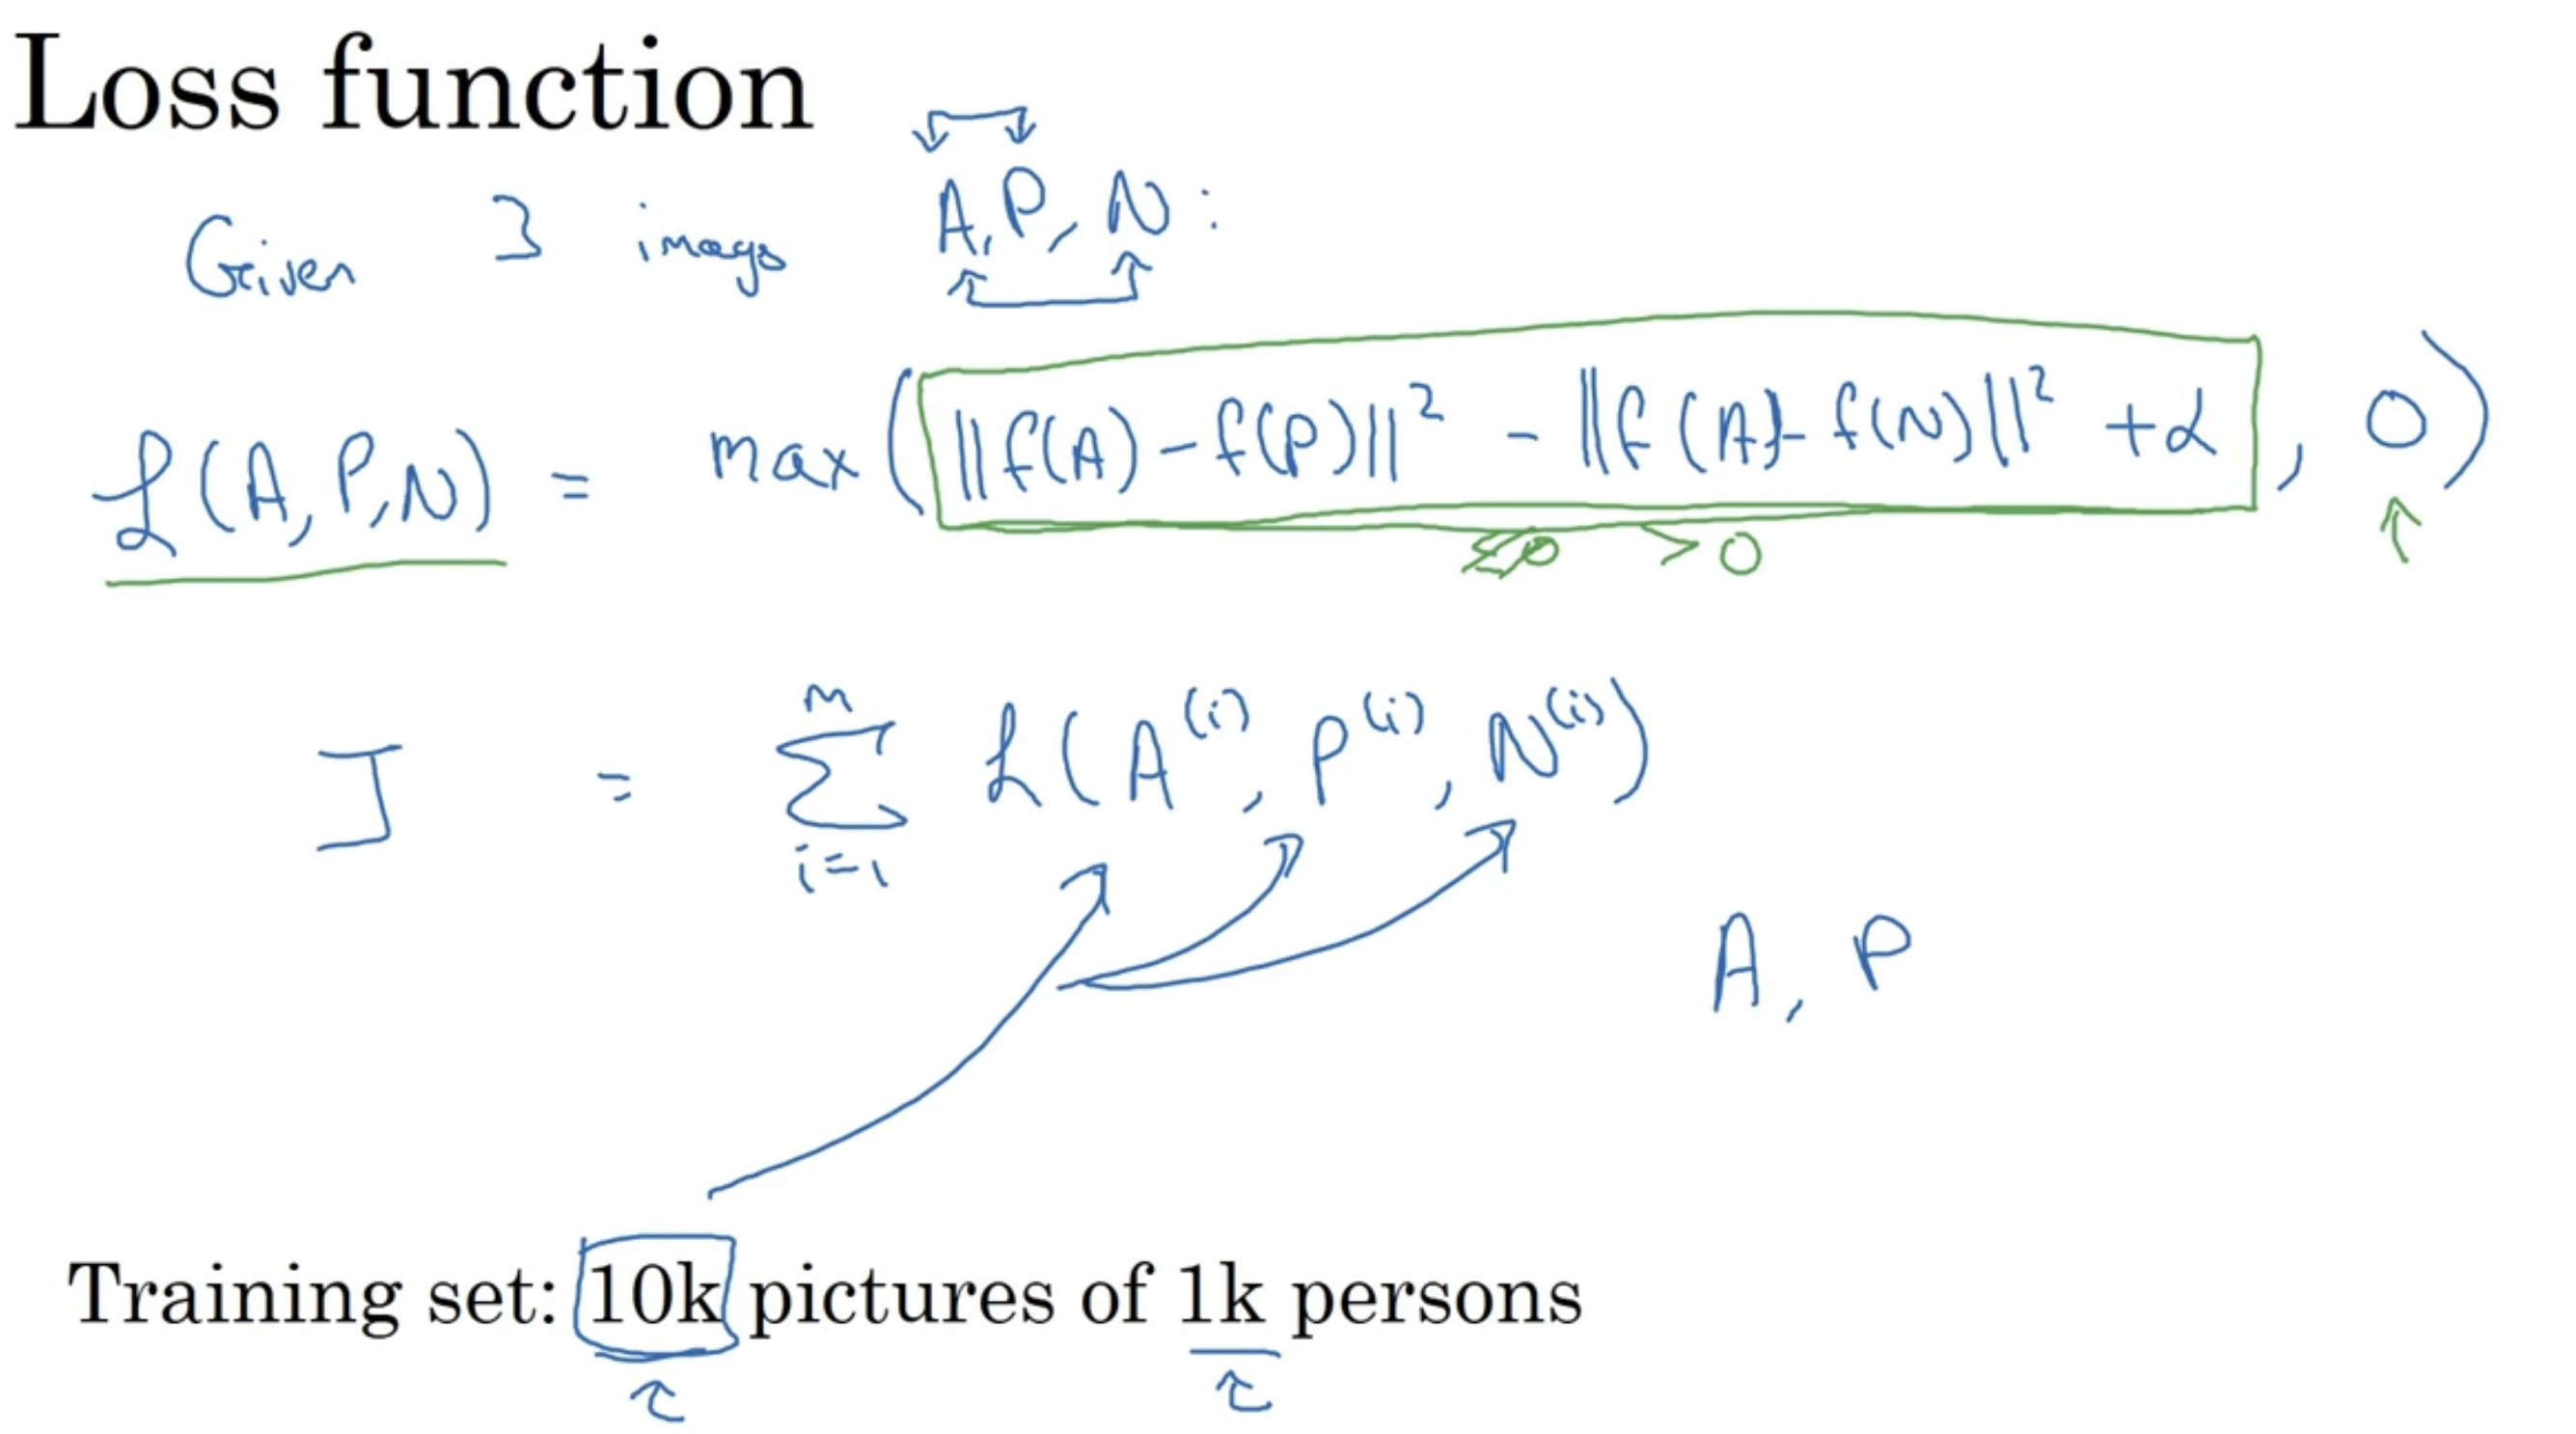 Loss function
Given 3 images A, P, N:
ℒ(A, P, N) = max(||f(A) - f(P)||² - ||f(A) - f(N)||² + α, 0)
≤0 > 0
J = Σ_{i=1}^{m} ℒ(A^{(i)}, P^{(i)}, N^{(i)})
A, P
Training set: 10k pictures of 1k persons